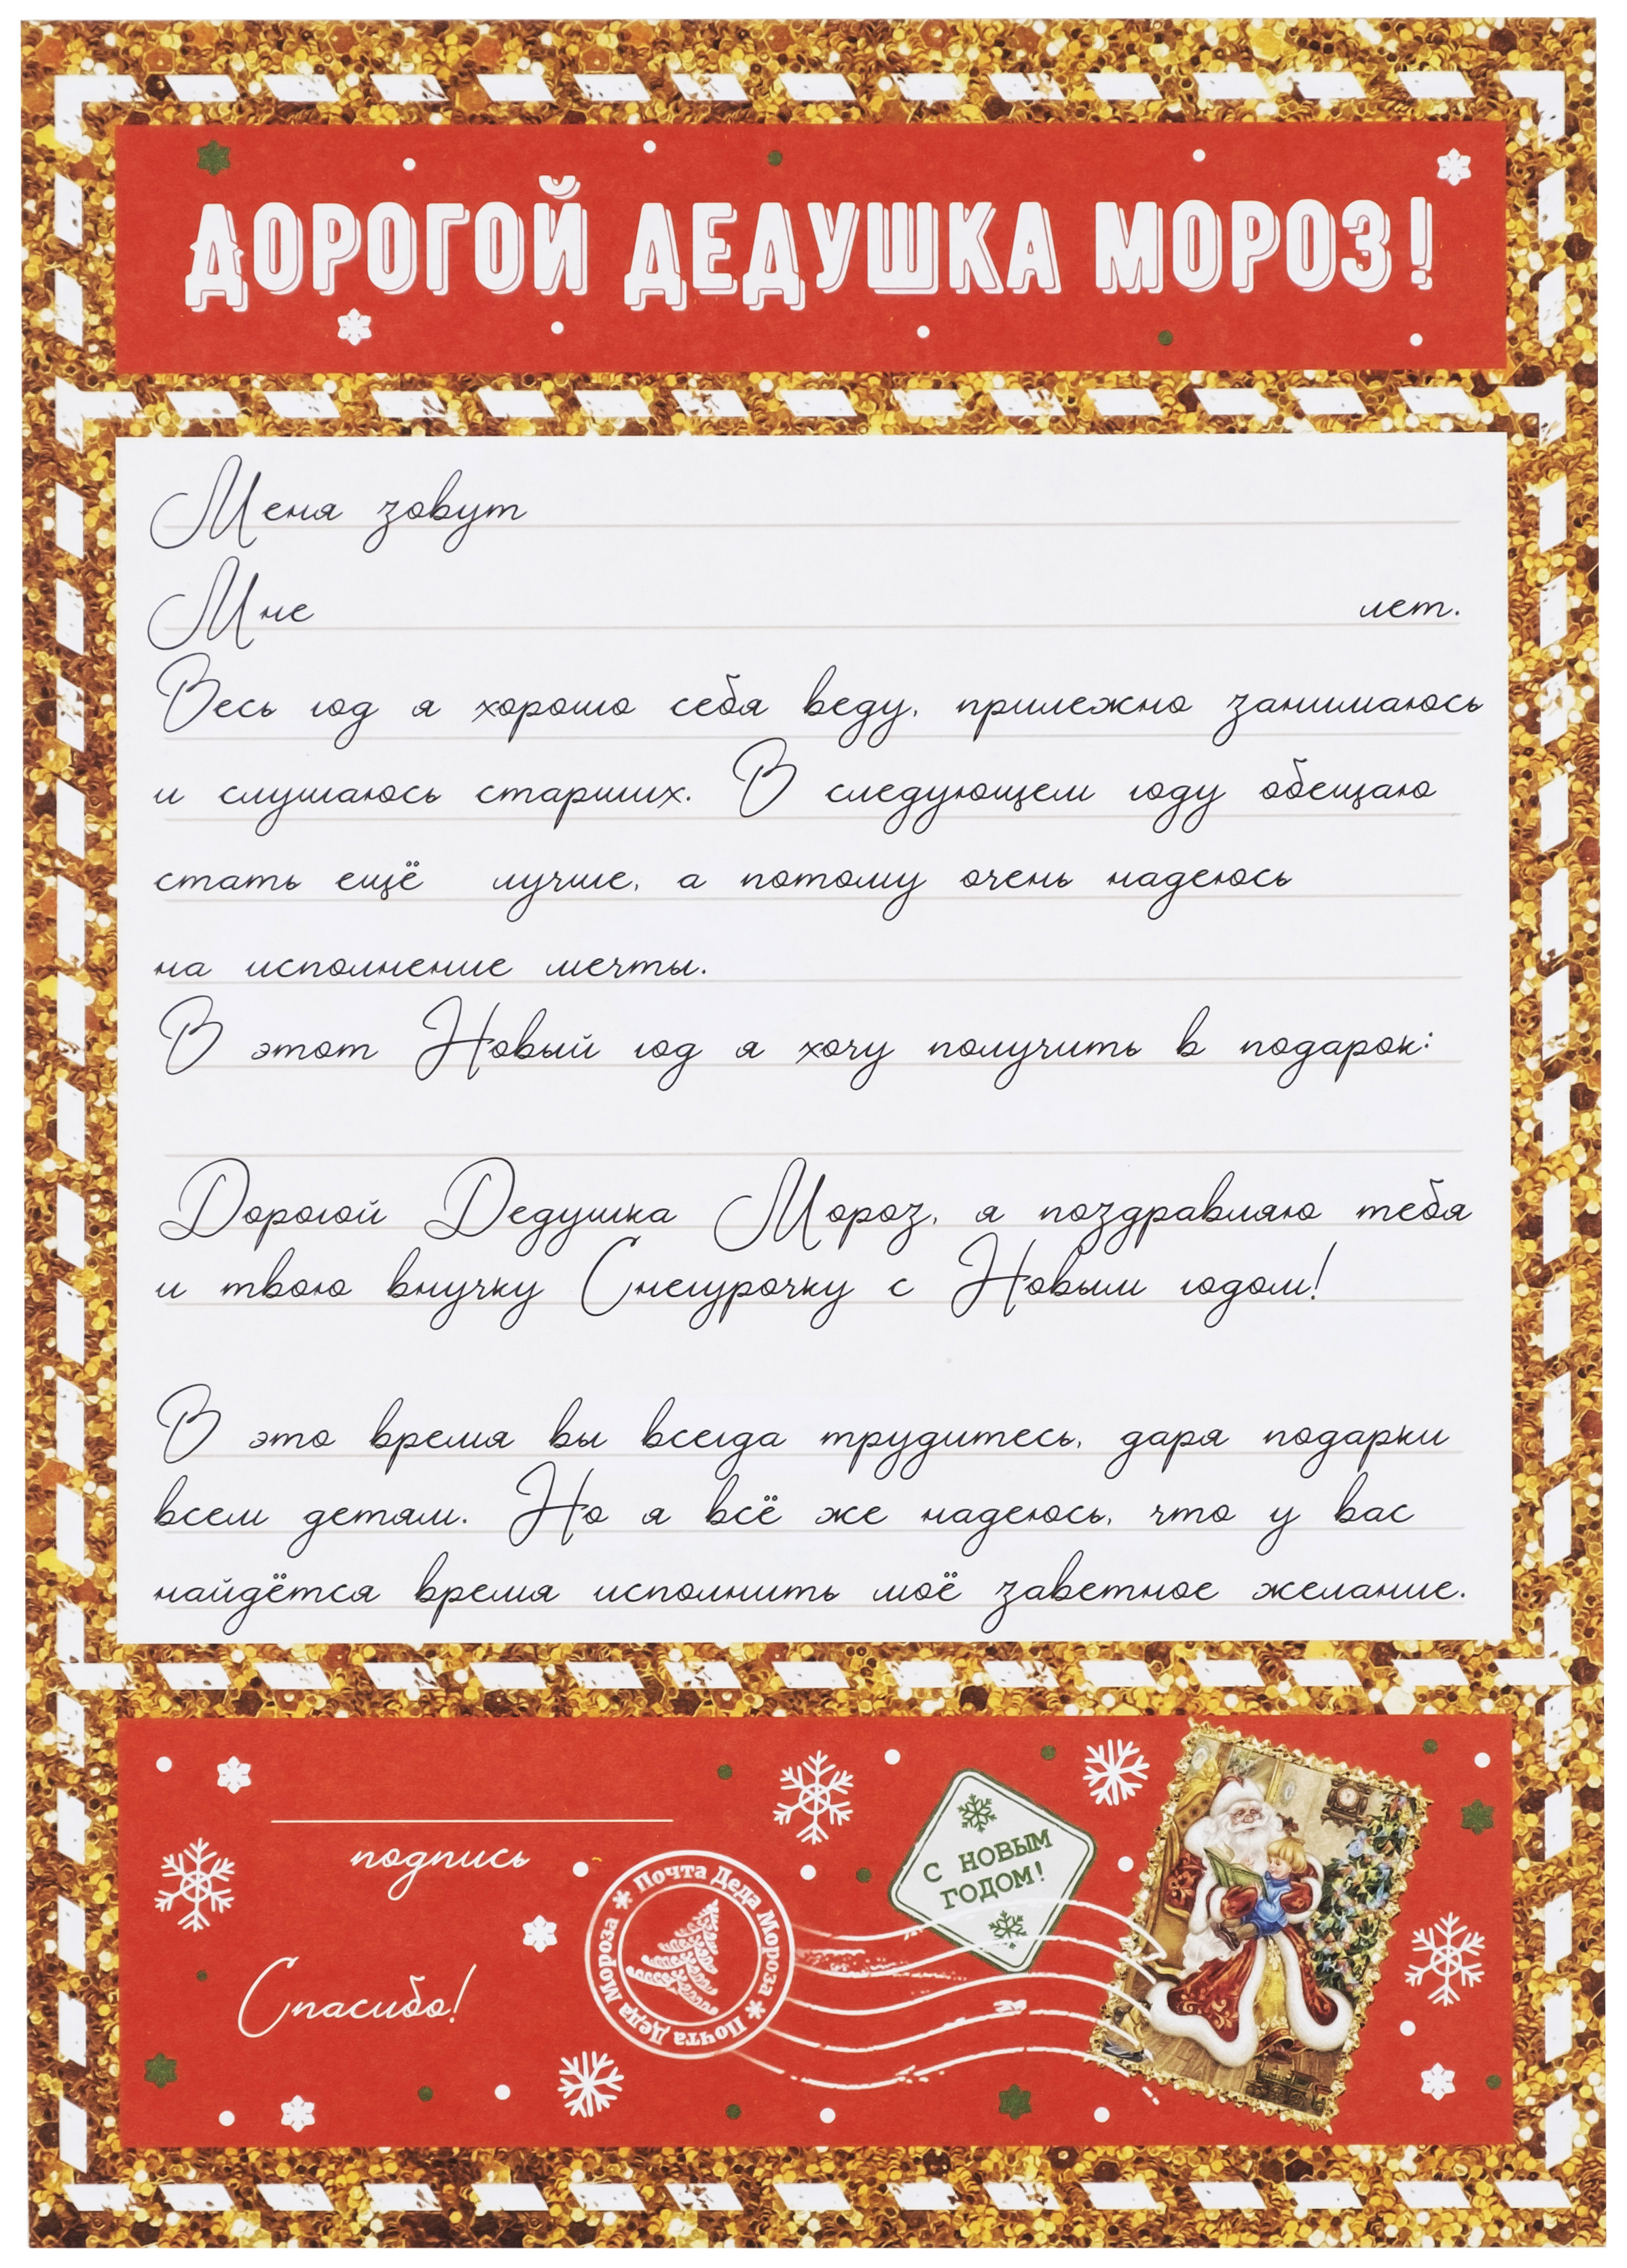 ДОРОГОЙ ДЕДУШКА МОРОЗ!
Меня зовут
Мне лет.
Весь год я хорошо себя веду, прилежно занимаюсь
и слушаюсь старших. В следующем году обещаю
стать ещё лучше, а потому очень надеюсь
на исполнение мечты.
В этот Новый год я хочу получить в подарок:
Дорогой Дедушка Мороз, я поздравляю тебя
и твою внучку Снегурочку с Новым годом!
В это время вы всегда трудитесь, даря подарки
всем детям. Но я всё же надеюсь, что у вас
найдётся время исполнить моё заветное желание.
подпись
Спасибо!
Почта Деда Мороза * Почта Деда Мороза *
С НОВЫМ
ГОДОМ!